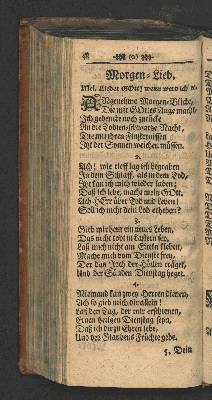 48 (o)
Morgen-Lied.
Mel. Liebster GOtt, wenn werd ich
ANgenehme Morgen-Blicke,
Die mit GOttes Auge
Ich gedencke noch zurücke
An die Todten-schwartze Nacht,
Die mit ihren Finsternissen
Itzt der Sonnen weichen müssen.
2.
Ach! wie tieff lag ich begraben
In dem Schlaff, als in dem Tod,
Itzt kan ich mich wieder laben;
Daß ich lebe, macht mein GOtt,
Ach HErr über Tod und Leben!
Soll ich nicht dein Lob erheben?
3.
Gieb mir heut ein neues Leben,
Das nicht todt in Lastern sey,
Laß mich nicht am Eiteln kleben,
Mache mich vom Dienste frey,
Der das Joch der Höllen träget,
Und der Sünden Dienstag heget.
4.
Niemand kan zwey Herren dienen,
Ach so gieb mich dir allein!
Laß den Tag, der mir erschienen,
Einen heilgen Dienstag seyn,
Daß ich dir zu Ehren lebe,
Und des Glaubens Früchte gebe.
5. Dein